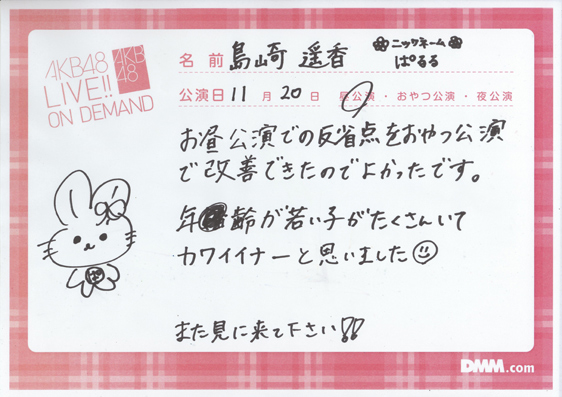 AKB48
LIVE!!
ON DEMAND
AKB
48
名前 島崎 遥香
ニックネーム
ぱるる
公演日 11月20日 昼公演・おやつ公演・夜公演
お昼公演での反省点をおやつ公演
で改善できたのでよかったです。
年齢が若い子がたくさんいて
カワイイナーと思いました
ぱ
また見に来て下さい!!
DMM.com